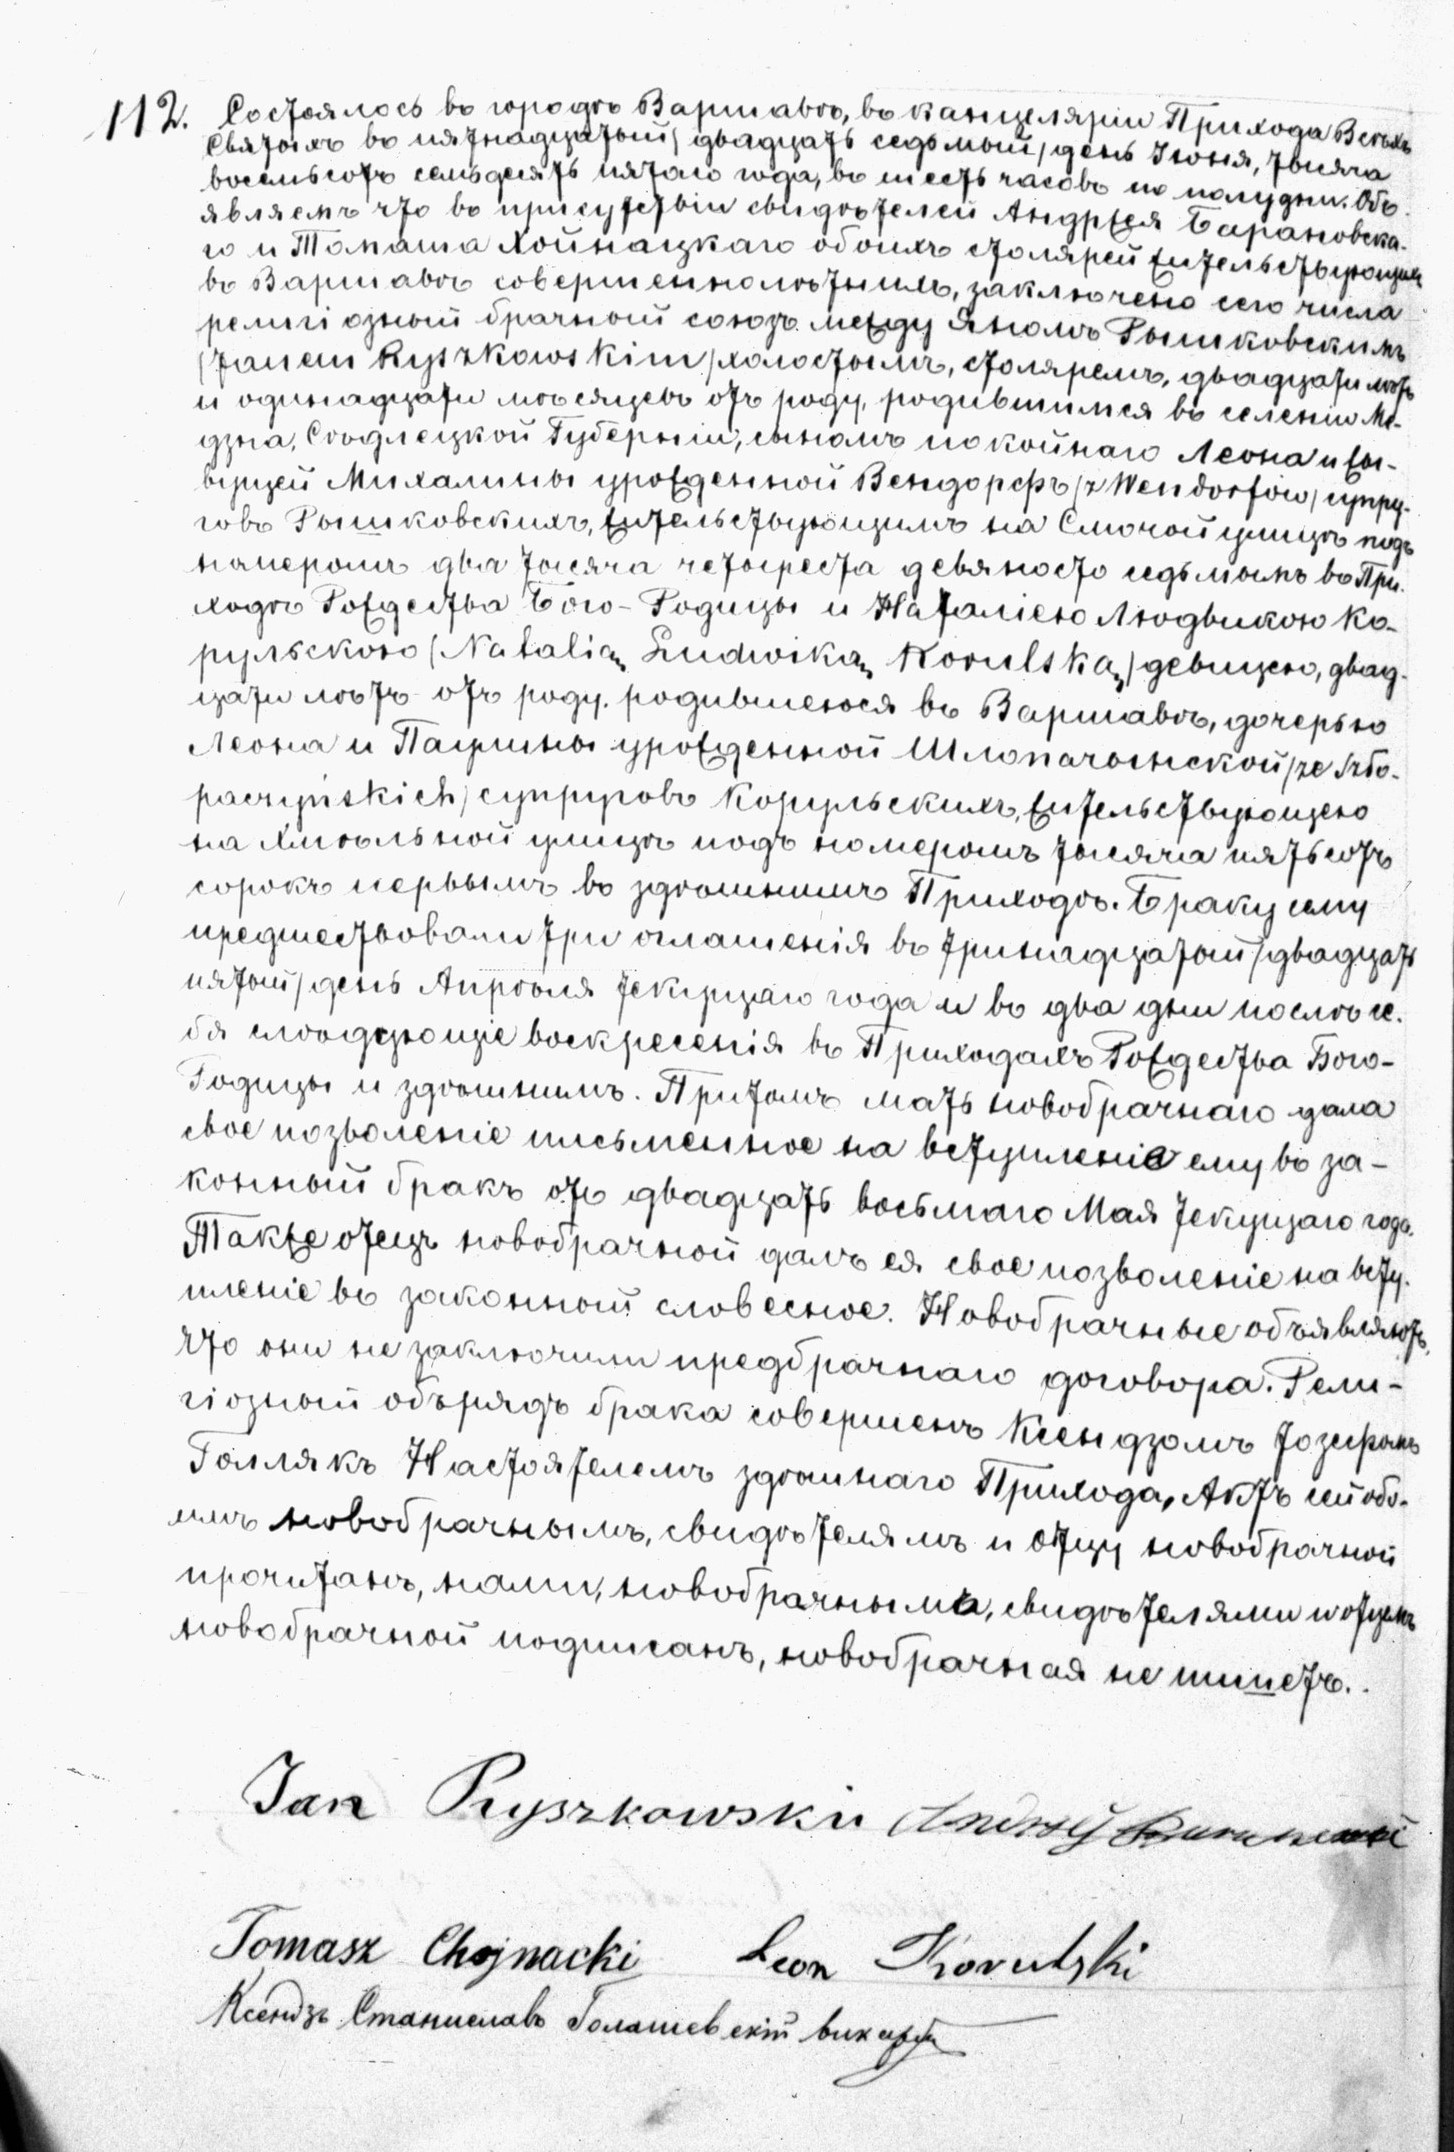 112. Состоялось въ городѣ Варшавѣ, въ канцеляріи Прихода Всѣхъ
Святыхъ въ пятнадцатый /двадцать седьмый/ день Іюня, тысяча
восемьсотъ семьдесятъ пятаго года, въ шесть часовъ по полудни. Объ-
являемъ что въ присутствіи свидѣтелей Андржея Барановска-
го и Томаша Хойнацкаго обоихъ столярей жительствующихъ
въ Варшавѣ совершеннолѣтнихъ, заключено сего числа
религіозный брачный союзъ между Яномъ Рышковскимъ
/Janem Ryszkowskim/ холостымъ, столяремъ, двадцати лѣтъ
и одинадцати мѣсяцевъ отъ роду, родившимся въ селеніи Ме-
дзна, Сѣдлецкой Губерніи, сыномъ покойнаго Леона и жи-
вущей Михалины урожденной Вендорфъ /z Wendorfów/ супру-
говъ Рышковскихъ, жительствующимъ на Смочой улицѣ подъ
номеромъ два тысяча четыреста девяносто седьмымъ въ При-
ходѣ Рождества Бого-Родицы и Наталіею Людвикою Ко-
рульскою /Natalią Ludwiką Korulską/ девицею, двад-
цати лѣтъ отъ роду, родившеюся въ Варшавѣ, дочерью
Леона и Паулины урожденной Шлопачынской /ze Szło-
paczyńskich/ супруговъ Корульскихъ, жительствующею
на Хмѣльной улицѣ подъ номеромъ тысяча пятьсотъ
сорокъ первымъ въ здѣшнимъ Приходѣ. Браку сему
предшествовали три оглашенія въ тринадцатый /двадцать
пятый/ день Апрѣля текущаго года и въ два дни послѣ се-
бя слѣдующіе воскресенія въ Приходахъ Рождества Бого-
Родицы и здѣшнимъ. Притомъ мать новобрачнаго дала
свое позволеніе письменное на вступленіе ему въ за-
конный бракъ отъ двадцать восьмаго Мая текущаго года.
Также отецъ новобрачной далъ ея свое позволеніе на всту-
пленіе въ законный словесное. Новобрачные объявляютъ,
что они не заключили предбрачнаго договора. Рели-
гіозный обърядъ брака совершенъ Ксендзомъ Іозефомъ
Голлякъ Настоятелемъ здѣшнаго Прихода, Актъ сей обо-
имъ новобрачнымъ, свидѣтелямъ и отцу новобрачной
прочитанъ, нами, новобрачнымъ, свидѣтелями и отцемъ
новобрачной подписанъ, новобрачная не пишетъ.
Jan Ryszkowski Andrzej
Tomasz Chojnacki Leon Korulski
Ксендзъ Станиславъ викарій